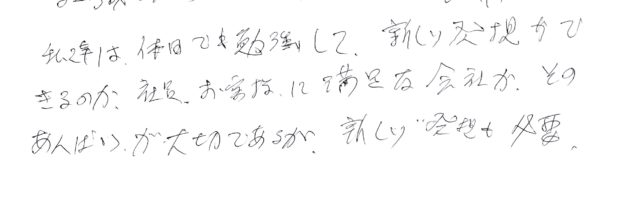 私達は、休日でも勉強して、新しい発想がで
きるのか、社員、お客様、に満足な会社か、その
あんばい、が大切であるが、新しい発想も必要。